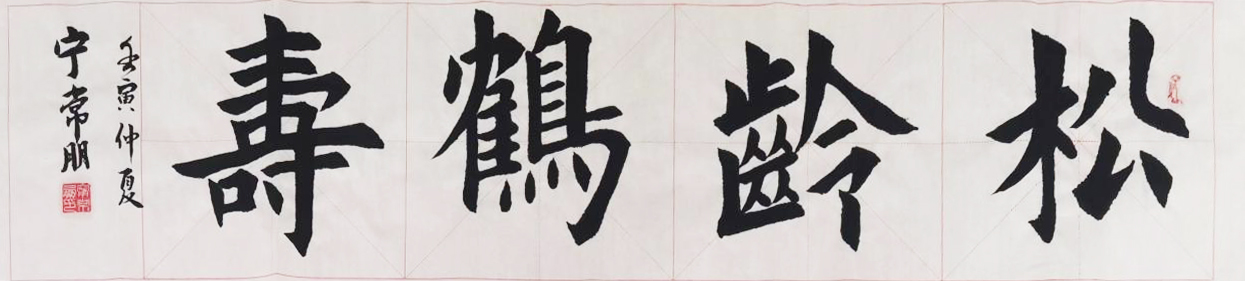 松齡鶴壽
壬寅仲夏
宁常朋